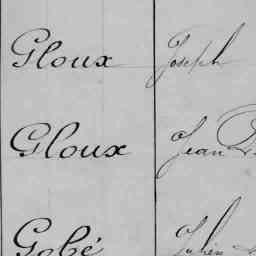 Gloux Joseph
Gloux Jean
Gobé Julien